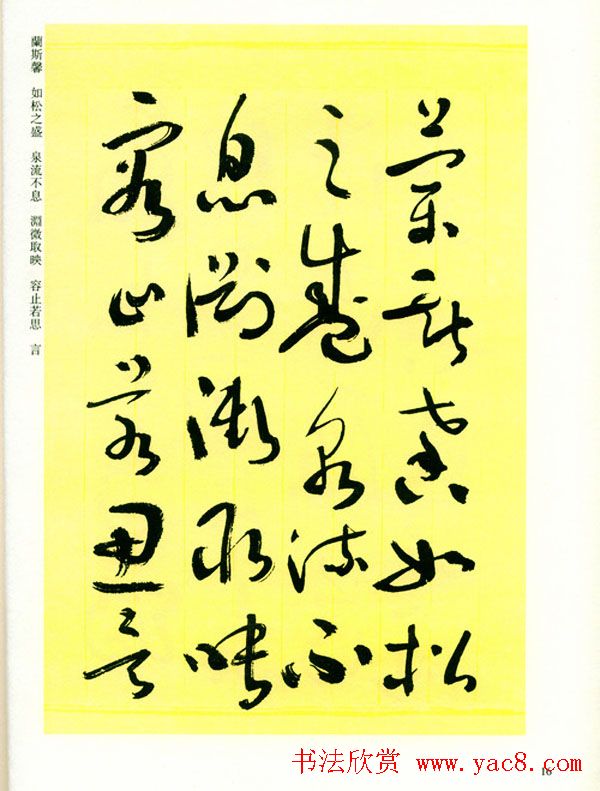 蘭斯馨如松
之盛泉流不
息淵澂取暎
容止若思言
蘭斯馨 如松之盛 泉流不息 淵微取暎 容止若思 言
书法欣赏 www.yac8.com
16